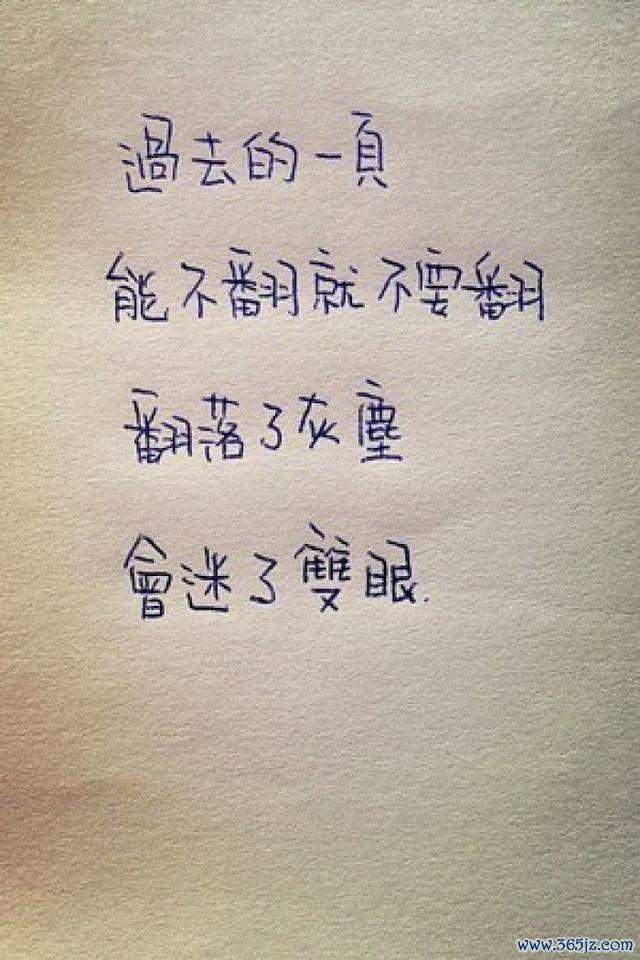 過去的一頁
能不翻就不要翻
翻落了灰塵
會迷了雙眼.
www.365jz.com